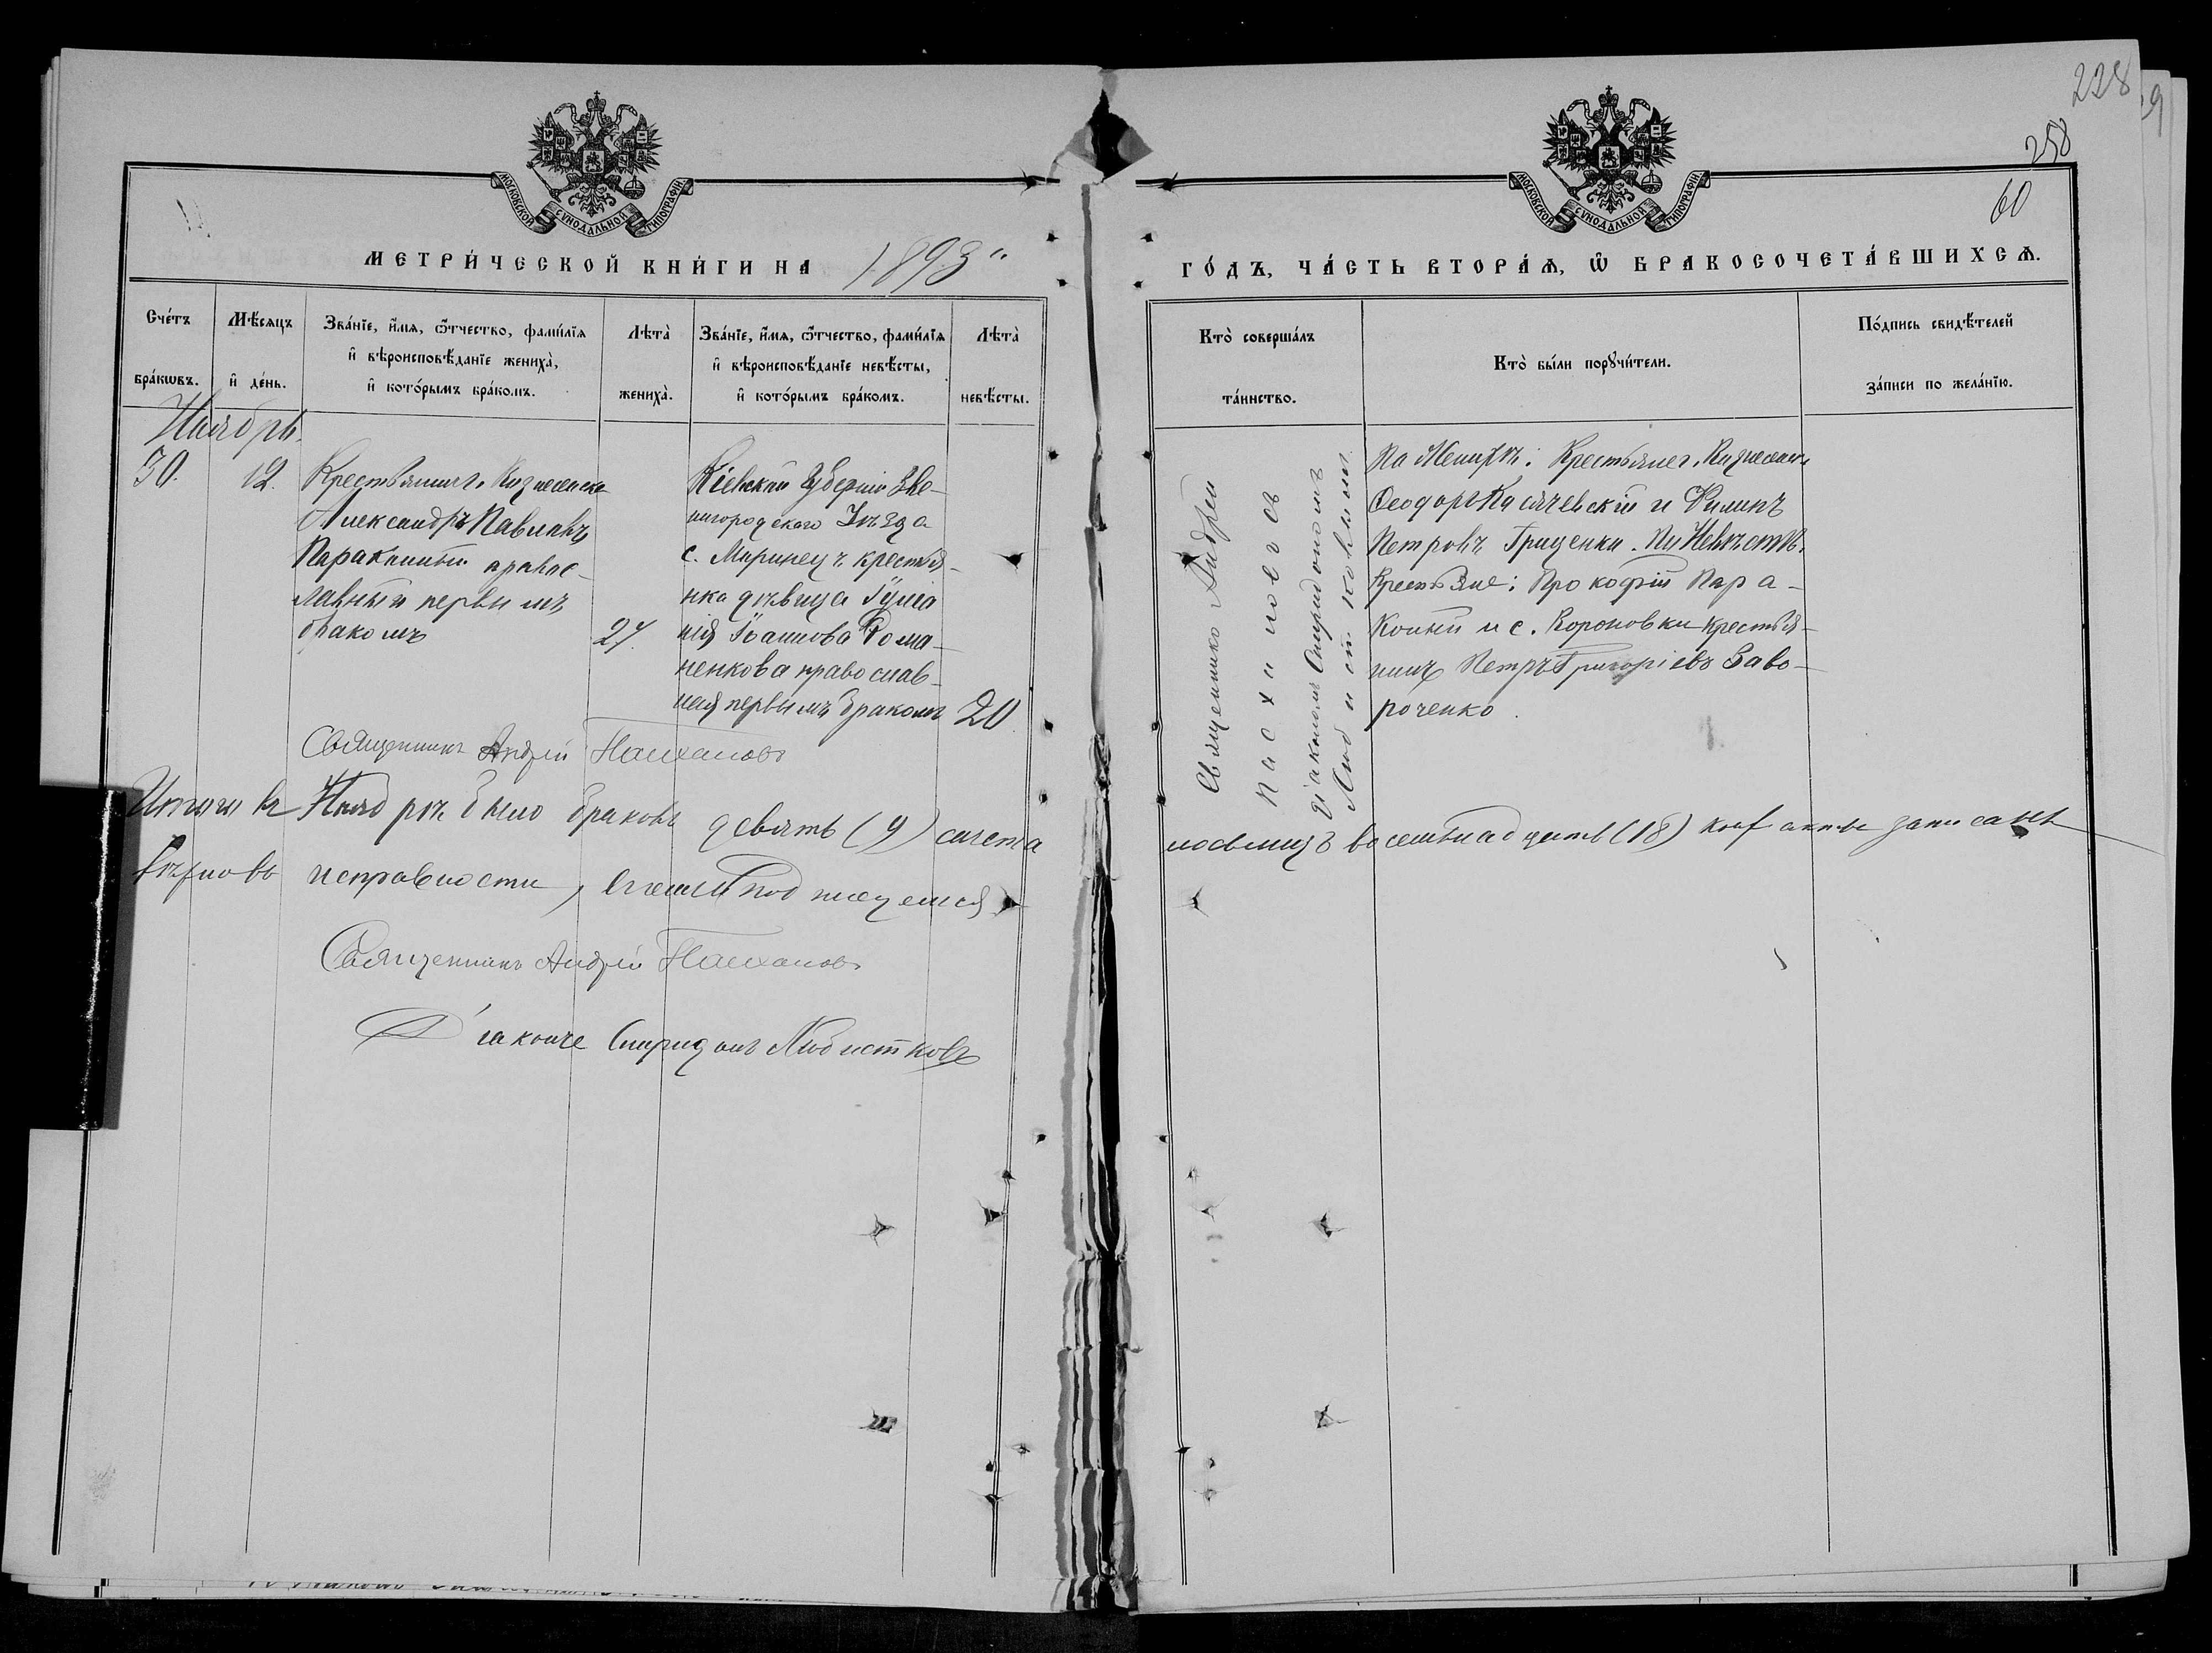 228
258
60
МОСКОВСКОЙ СѴНОДАЛЬНОЙ ТИПОГРАФІИ
МОСКОВСКОЙ СѴНОДАЛЬНОЙ ТИПОГРАФІИ
МЕТРИ́ЧЕСКОЙ КНИ́ГИ НА 1893
ГО́ДЪ, ЧА́СТЬ ВТОРА́Ѧ, Ѽ БРАКОСОЧЕТА́ВШИХСѦ.
Сче́тъ бра́кѡвъ.
Мѣ́сяцъ и҆ де́нь.
Зва́нїе, и҆́мѧ, ѻ҆́тчество, фами́лїѧ
и҆ вѣроисповѣ́данїе жениха̀,
и҆ кото́рымъ бра́комъ.
Лѣта̀ жениха̀.
Зва́нїе, и҆́мѧ, ѻ҆́тчество, фами́лїѧ
и҆ вѣроисповѣ́данїе невѣ́сты,
и҆ кото́рымъ бра́комъ.
Лѣта̀ невѣ́сты.
Кто̀ соверша́лъ та́инство.
Кто̀ бы́ли порꙋчи́тели.
По́дпись свидѣ́телей за́писи по жела́нїю.
Ноябрь.
30.
12.
Крестьянинъ
Александръ Павловъ
Параконный правос-
лавный первымъ
бракомъ
27.
Кіевской Губерніи Зве-
нигородскаго Уѣзда
с. Моринецъ крестья-
нка дѣвица Іуліа
нія Іоаннова Рома-
ненкова православ-
ная первымъ бракомъ
20
Священникъ Андрей
Діакономъ Спиридономъ
Любистковымъ
По Женихѣ: Крестьяне
Ѳеодоръ и Филипъ
Петровъ Гриценко. По Невѣстѣ.
Крестьяне: Прокофій Пара-
конный и с. Вороновки крестья-
нинъ Петръ Григоріевъ Заво-
роченко.
Священникъ Андрей
Итого въ Ноябрѣ было браковъ девять (9) счетъ
восемнадцать (18) акты записаны
исправности, въ чемъ и подписуемся
Священникъ Андрей
Діаконъ Спиридонъ Любистковъ